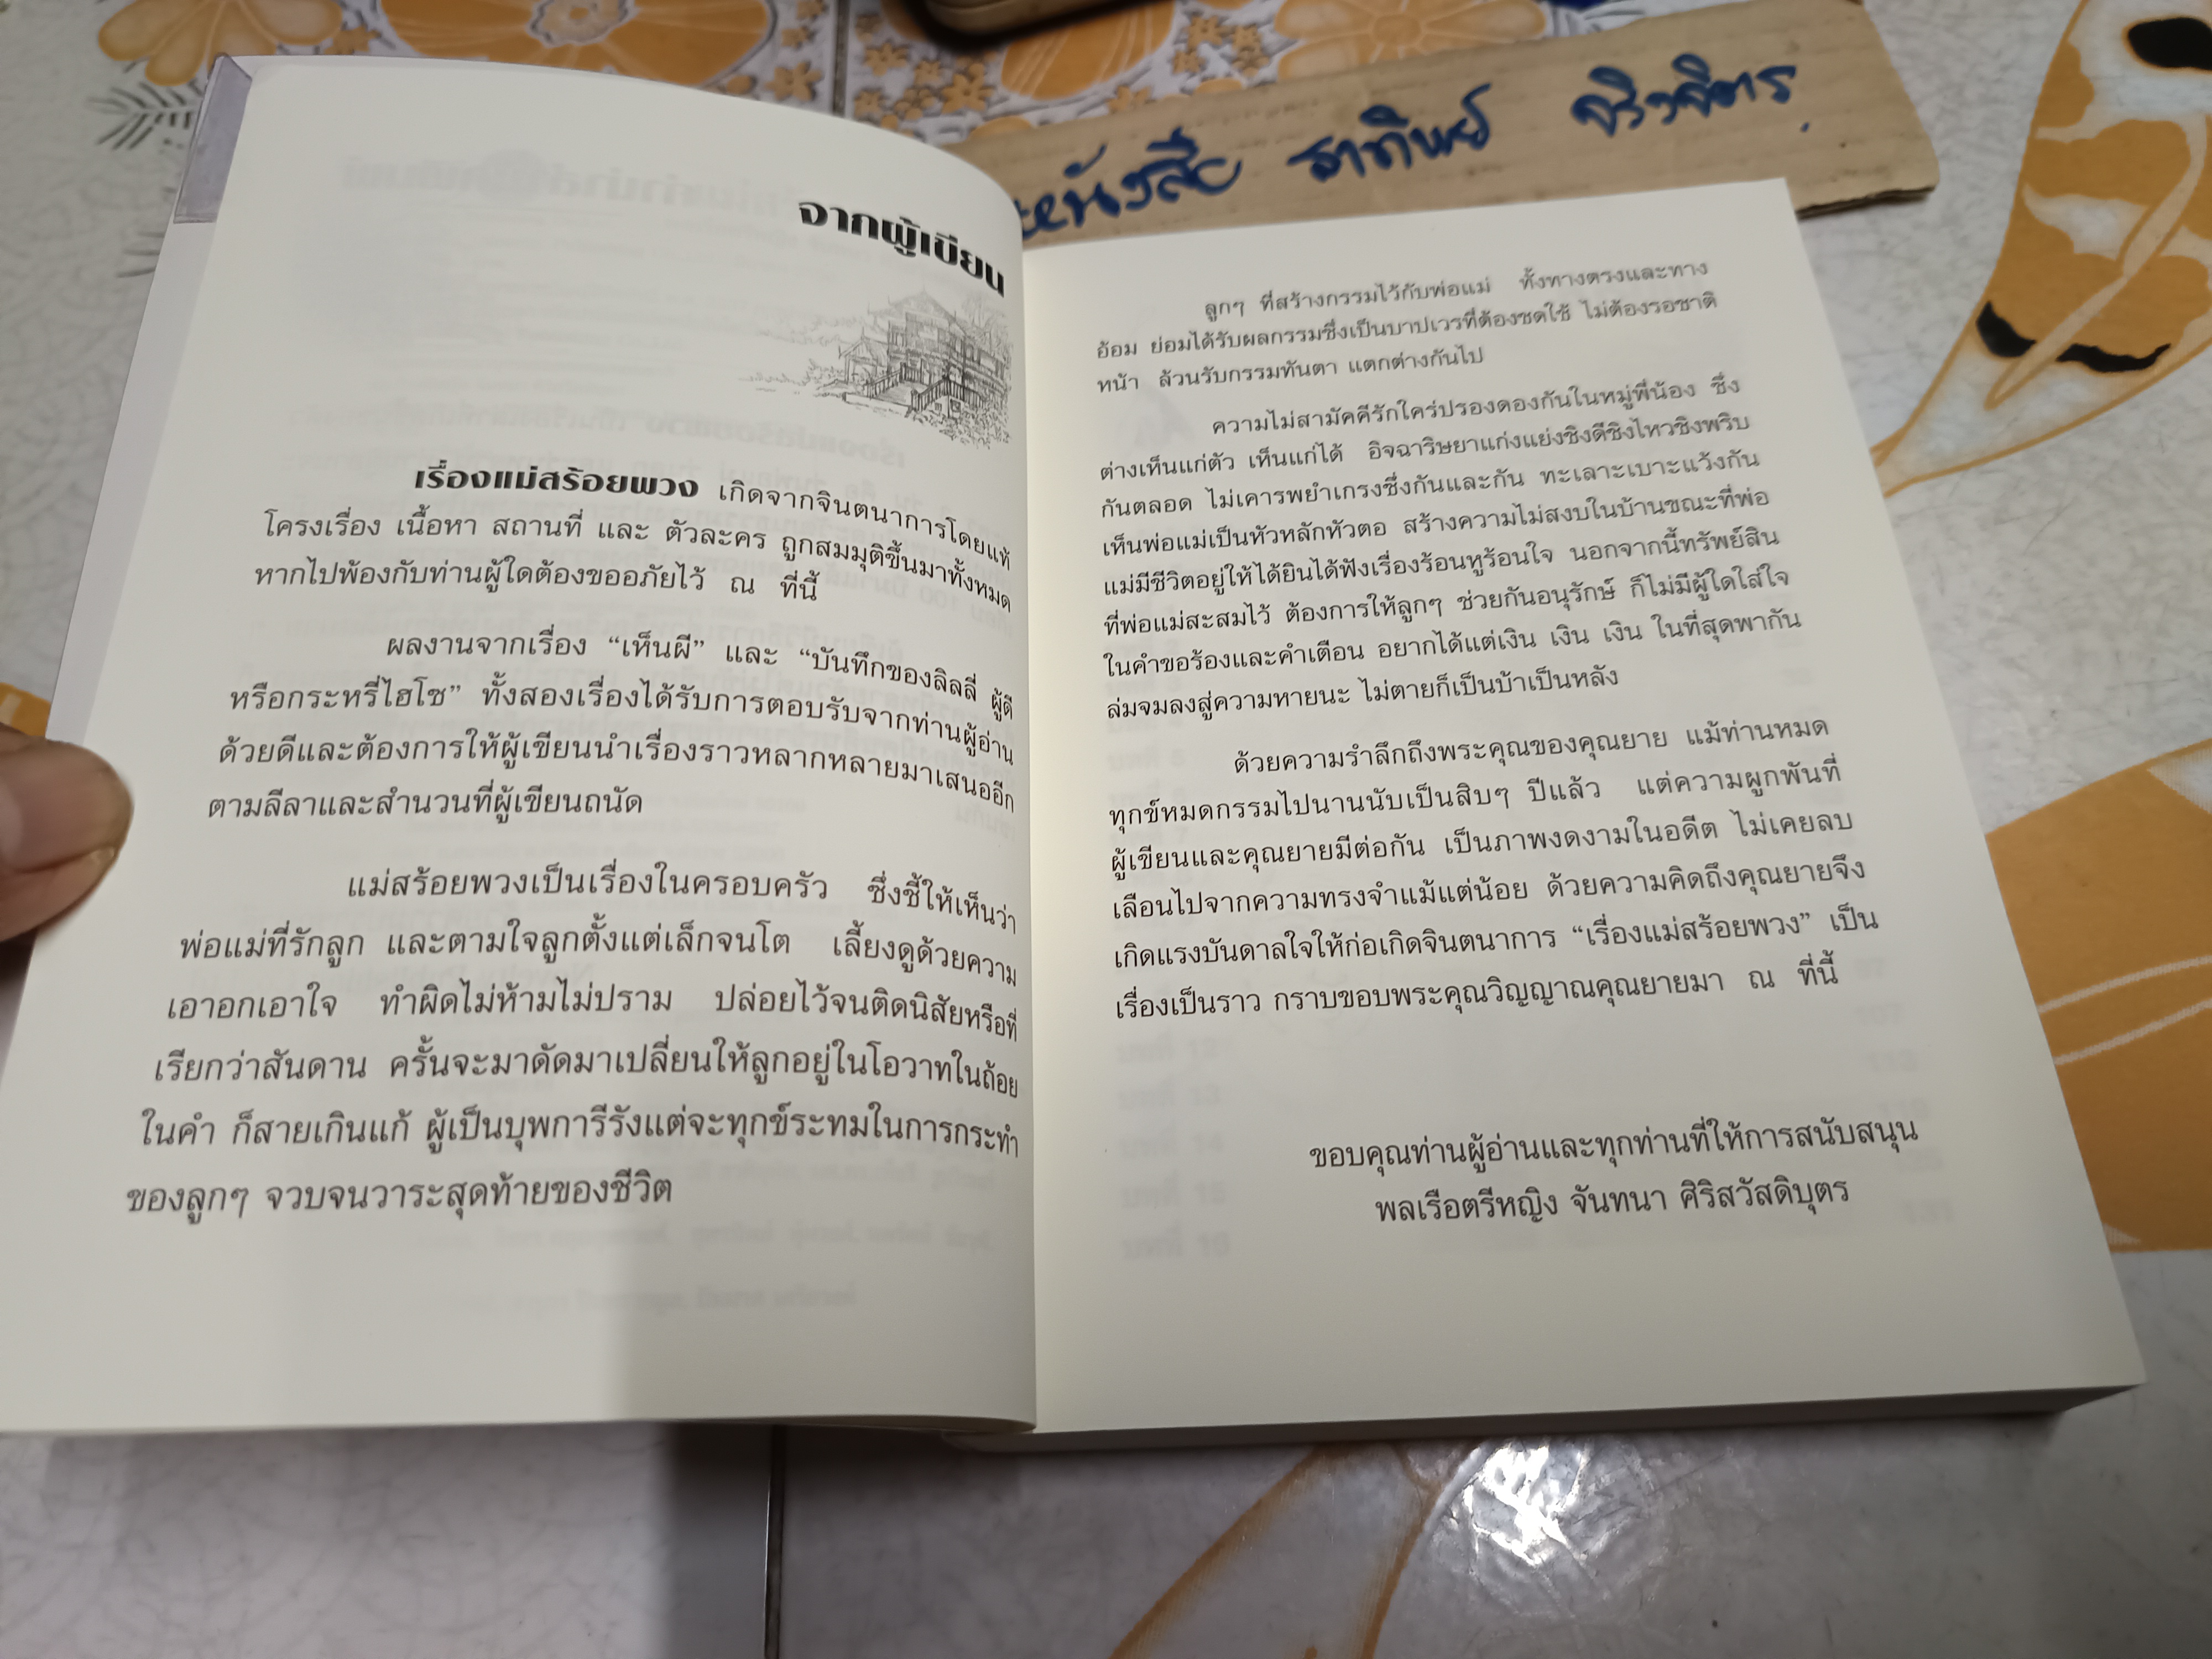 หนังสือ ธาทิพย์ จริงจิตร
จากผู้เขียน
เรื่องแม่สร้อยพวง เกิดจากจินตนาการโดยแท้
โครงเรื่อง เนื้อหา สถานที่ และ ตัวละคร ถูกสมมุติขึ้นมาทั้งหมด
หากไปพ้องกับท่านผู้ใดต้องขออภัยไว้ ณ ที่นี้
ผลงานจากเรื่อง “เห็นผี” และ “บันทึกของลิลลี่ ผู้ดี
หรือกระหรี่ไฮโซ” ทั้งสองเรื่องได้รับการตอบรับจากท่านผู้อ่าน
ด้วยดีและต้องการให้ผู้เขียนนำเรื่องราวหลากหลายมาเสนออีก
ตามลีลาและสำนวนที่ผู้เขียนถนัด
แม่สร้อยพวงเป็นเรื่องในครอบครัว ซึ่งชี้ให้เห็นว่า
พ่อแม่ที่รักลูก และตามใจลูกตั้งแต่เล็กจนโต เลี้ยงดูด้วยความ
เอาอกเอาใจ ทำผิดไม่ห้ามไม่ปราม ปล่อยไว้จนติดนิสัยหรือที่
เรียกว่าสันดาน ครั้นจะมาดัดมาเปลี่ยนให้ลูกอยู่ในโอวาทในถ้อย
ในคำ ก็สายเกินแก้ ผู้เป็นบุพการีรังแต่จะทุกข์ระทมในการกระทำ
ของลูกๆ จวบจนวาระสุดท้ายของชีวิต
ลูกๆ ที่สร้างกรรมไว้กับพ่อแม่ ทั้งทางตรงและทาง
อ้อม ย่อมได้รับผลกรรมซึ่งเป็นบาปเวรที่ต้องชดใช้ ไม่ต้องรอชาติ
หน้า ล้วนรับกรรมทันตา แตกต่างกันไป
ความไม่สามัคคีรักใคร่ปรองดองกันในหมู่พี่น้อง ซึ่ง
ต่างเห็นแก่ตัว เห็นแก่ได้ อิจฉาริษยาแก่งแย่งชิงดีชิงไหวชิงพริบ
กันตลอด ไม่เคารพยำเกรงซึ่งกันและกัน ทะเลาะเบาะแว้งกัน
เห็นพ่อแม่เป็นหัวหลักหัวตอ สร้างความไม่สงบในบ้านขณะที่พ่อ
แม่มีชีวิตอยู่ให้ได้ยินได้ฟังเรื่องร้อนหูร้อนใจ นอกจากนี้ทรัพย์สิน
ที่พ่อแม่สะสมไว้ ต้องการให้ลูกๆ ช่วยกันอนุรักษ์ ก็ไม่มีผู้ใดใส่ใจ
ในคำขอร้องและคำเตือน อยากได้แต่เงิน เงิน เงิน ในที่สุดพากัน
ล่มจมลงสู่ความหายนะ ไม่ตายก็เป็นบ้าเป็นหลัง
ด้วยความรำลึกถึงพระคุณของคุณยาย แม้ท่านหมด
ทุกข์หมดกรรมไปนานนับเป็นสิบๆ ปีแล้ว แต่ความผูกพันที่
ผู้เขียนและคุณยายมีต่อกัน เป็นภาพงดงามในอดีต ไม่เคยลบ
เลือนไปจากความทรงจำแม้แต่น้อย ด้วยความคิดถึงคุณยายจึง
เกิดแรงบันดาลใจให้ก่อเกิดจินตนาการ “เรื่องแม่สร้อยพวง” เป็น
เรื่องเป็นราว กราบขอบพระคุณวิญญาณคุณยายมา ณ ที่นี้
ขอบคุณท่านผู้อ่านและทุกท่านที่ให้การสนับสนุน
พลเรือตรีหญิง จันทนา ศิริสวัสดิบุตร